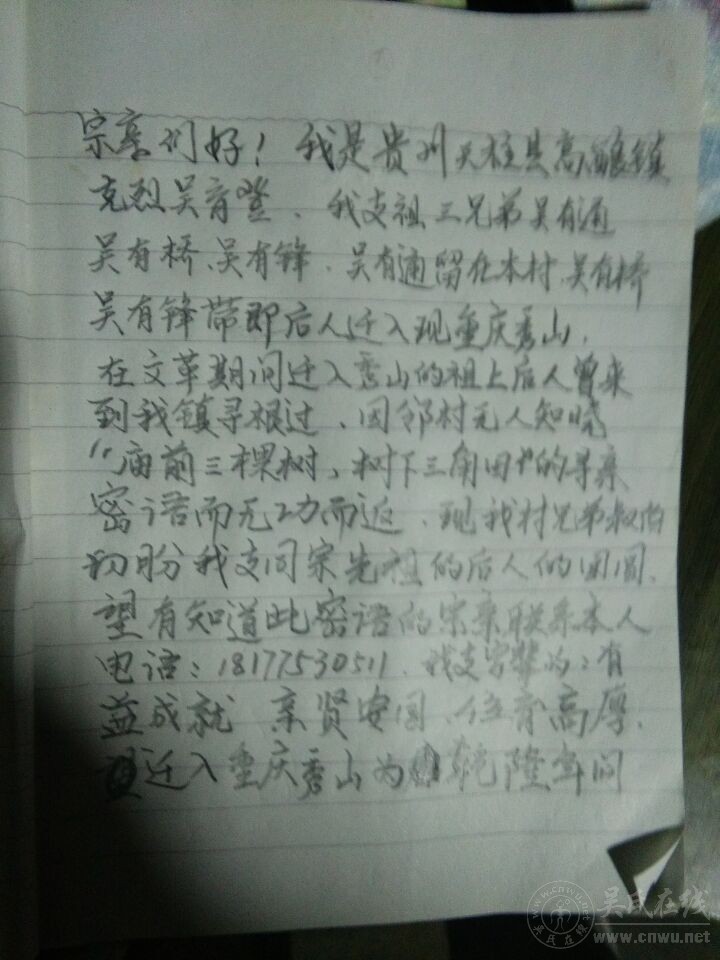 宗亲们好！我是贵州天柱县高酿镇
克烈吴育登、我支祖三兄弟吴有通
吴有桥、吴有锋、吴有通留在本村、吴有桥
吴有锋带即后人迁入现重庆秀山，
在文革期间迁入秀山的祖上后人曾来
到我镇寻根过、因邻村无人知晓
“庙前三棵树，树下三角田”的寻亲
密语而无功而返、现我村兄弟叔伯
切盼我支同宗先祖的后人的团圆、
望有知道此密语的宗亲联系本人
电话：18177530511、我支字辈为：有
益成就 亲贤安国 位育高厚、
迁入重庆秀山为乾隆年间
吴氏在线
www.cnwu.net